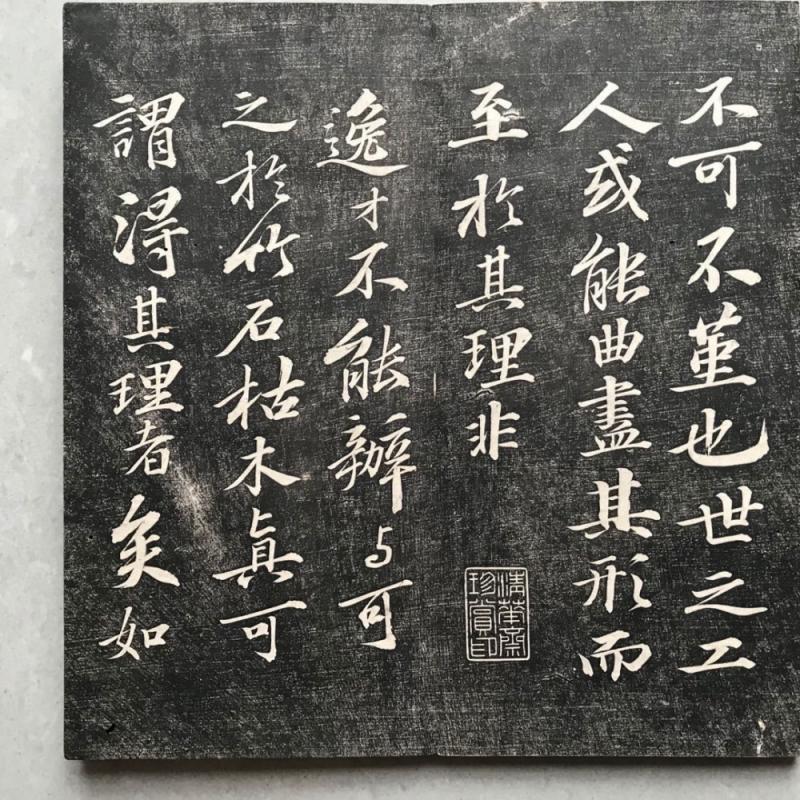 不可不堇也世之工
人或能曲盡其形而
至於其理非
逸才不能辦与可
之於竹石枯木眞可
謂得其理者矣如
清華齋
珍賞印